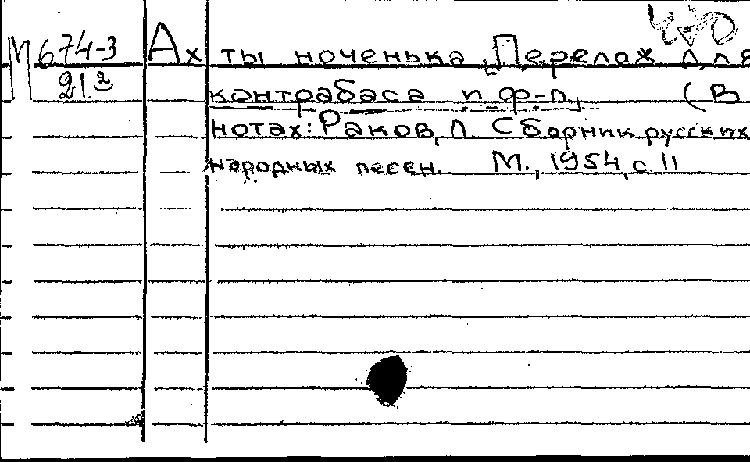 480
М 674-3 Ах ты ноченька [Перелож для
21.2 контрабаса и ф-п, (В
нотах: Раков, Л Сборник русских
народных песен. М., 1954, с 11